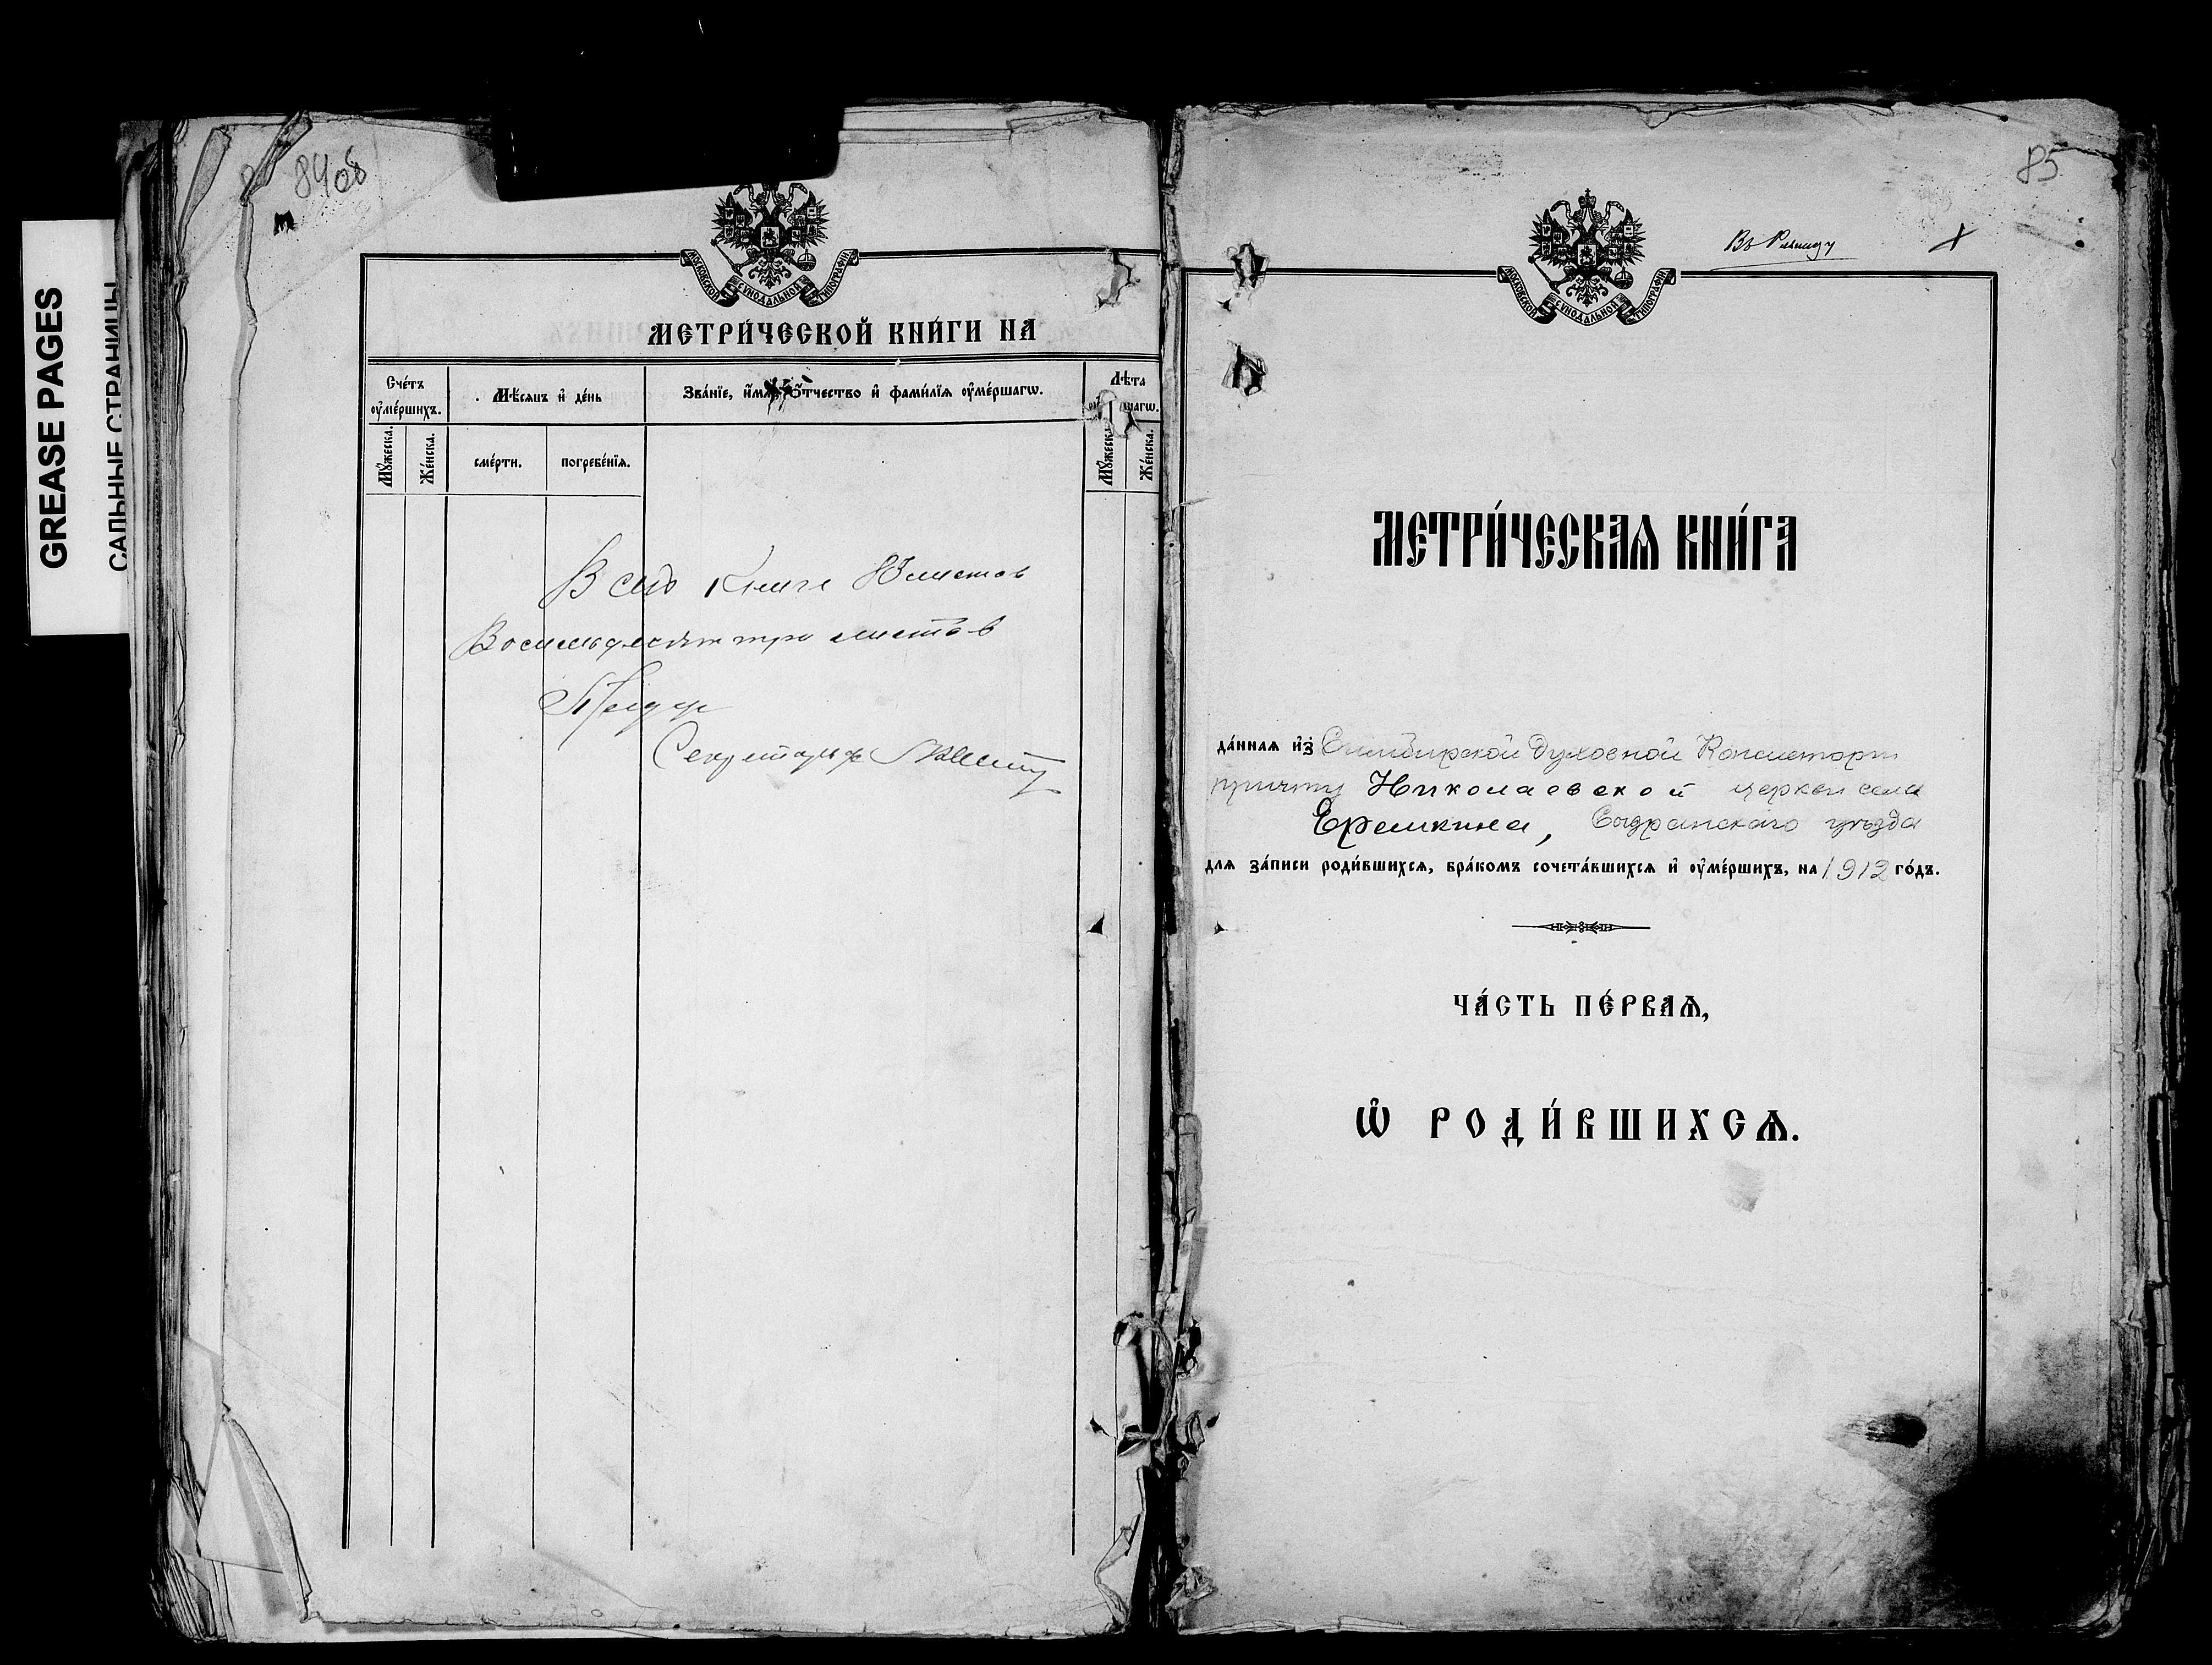 GREASE PAGES
САЛЬНЫЕ СТРАНИЦЫ
84об
МОСКОВСКОЙ СѴНОДАЛЬНОЙ ТИПОГРАФІИ
МЕТРИ́ЧЕСКОЙ КНИ́ГИ НА
Сче́тъ ᲂу҆ме́ршихъ.
Мѣ́сяцъ и҆ де́нь
Зва́нїе, и҆́мѧ, ѻ҆́тчество и҆ фами́лїѧ ᲂу҆ме́ршагѡ.
Лѣ́та
шагѡ.
Мꙋ́жеска.
Же́нска.
сме́рти.
погребе́нїѧ.
Мꙋ́жеска.
Же́нска.
В сей книге 83 листов
Восемьдесят три листов
Секретарь
85
Въ
МОСКОВСКОЙ СѴНОДАЛЬНОЙ ТИПОГРАФІИ
МЕТРИ́ЧЕСКАѦ КНИ́ГА
да́ннаѧ и҆з̾ Симбирской Духовной Консисторіи
причту Николаевской церкви села
Еремкина, Сызранскаго уѣзда
для за́писи роди́вшихсѧ, бра́комъ сочета́вшихсѧ и҆ ᲂу҆ме́ршихъ, на 1912 го́дъ.
ЧА́СТЬ ПЕ́РВАѦ,
Ѡ҆ РОДИ́ВШИХСѦ.